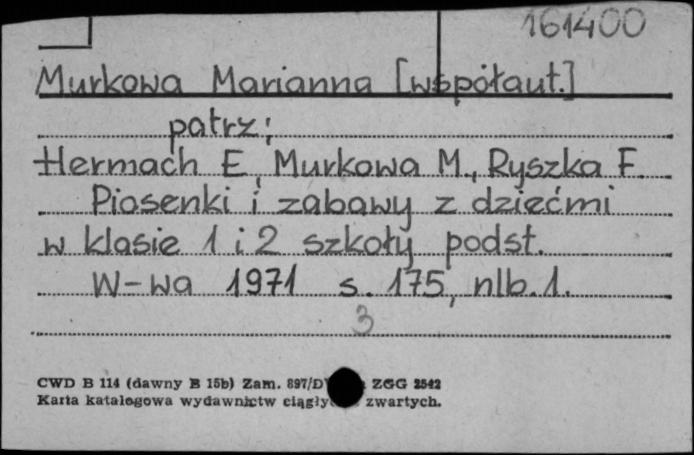 161400
Murkowa Marianna [współaut.]
patrz:
Hermach E., Murkowa M., Ryszka F.
Piosenki i zabawy z dziećmi
w klasie 1 i 2 szkoły podst.
W-wa 1971 s. 175, nlb. 1.
3
CWD B 114 (dawny B 15b) Zam. 897/D ZGG 2542
Karta katalogowa wydawnictw zwartych.